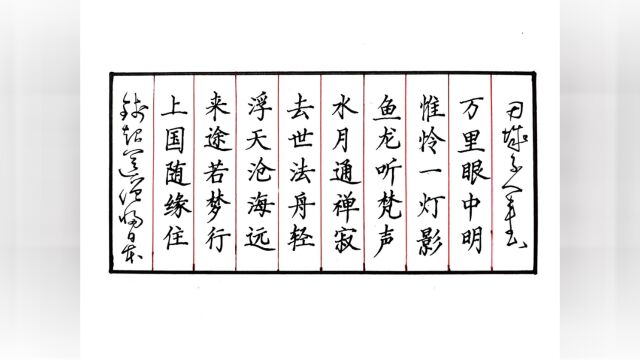 钱起送僧归日本
上国随缘住
来途若梦行
浮天沧海远
去世法舟轻
水月通禅寂
鱼龙听梵声
惟怜一灯影
万里眼中明